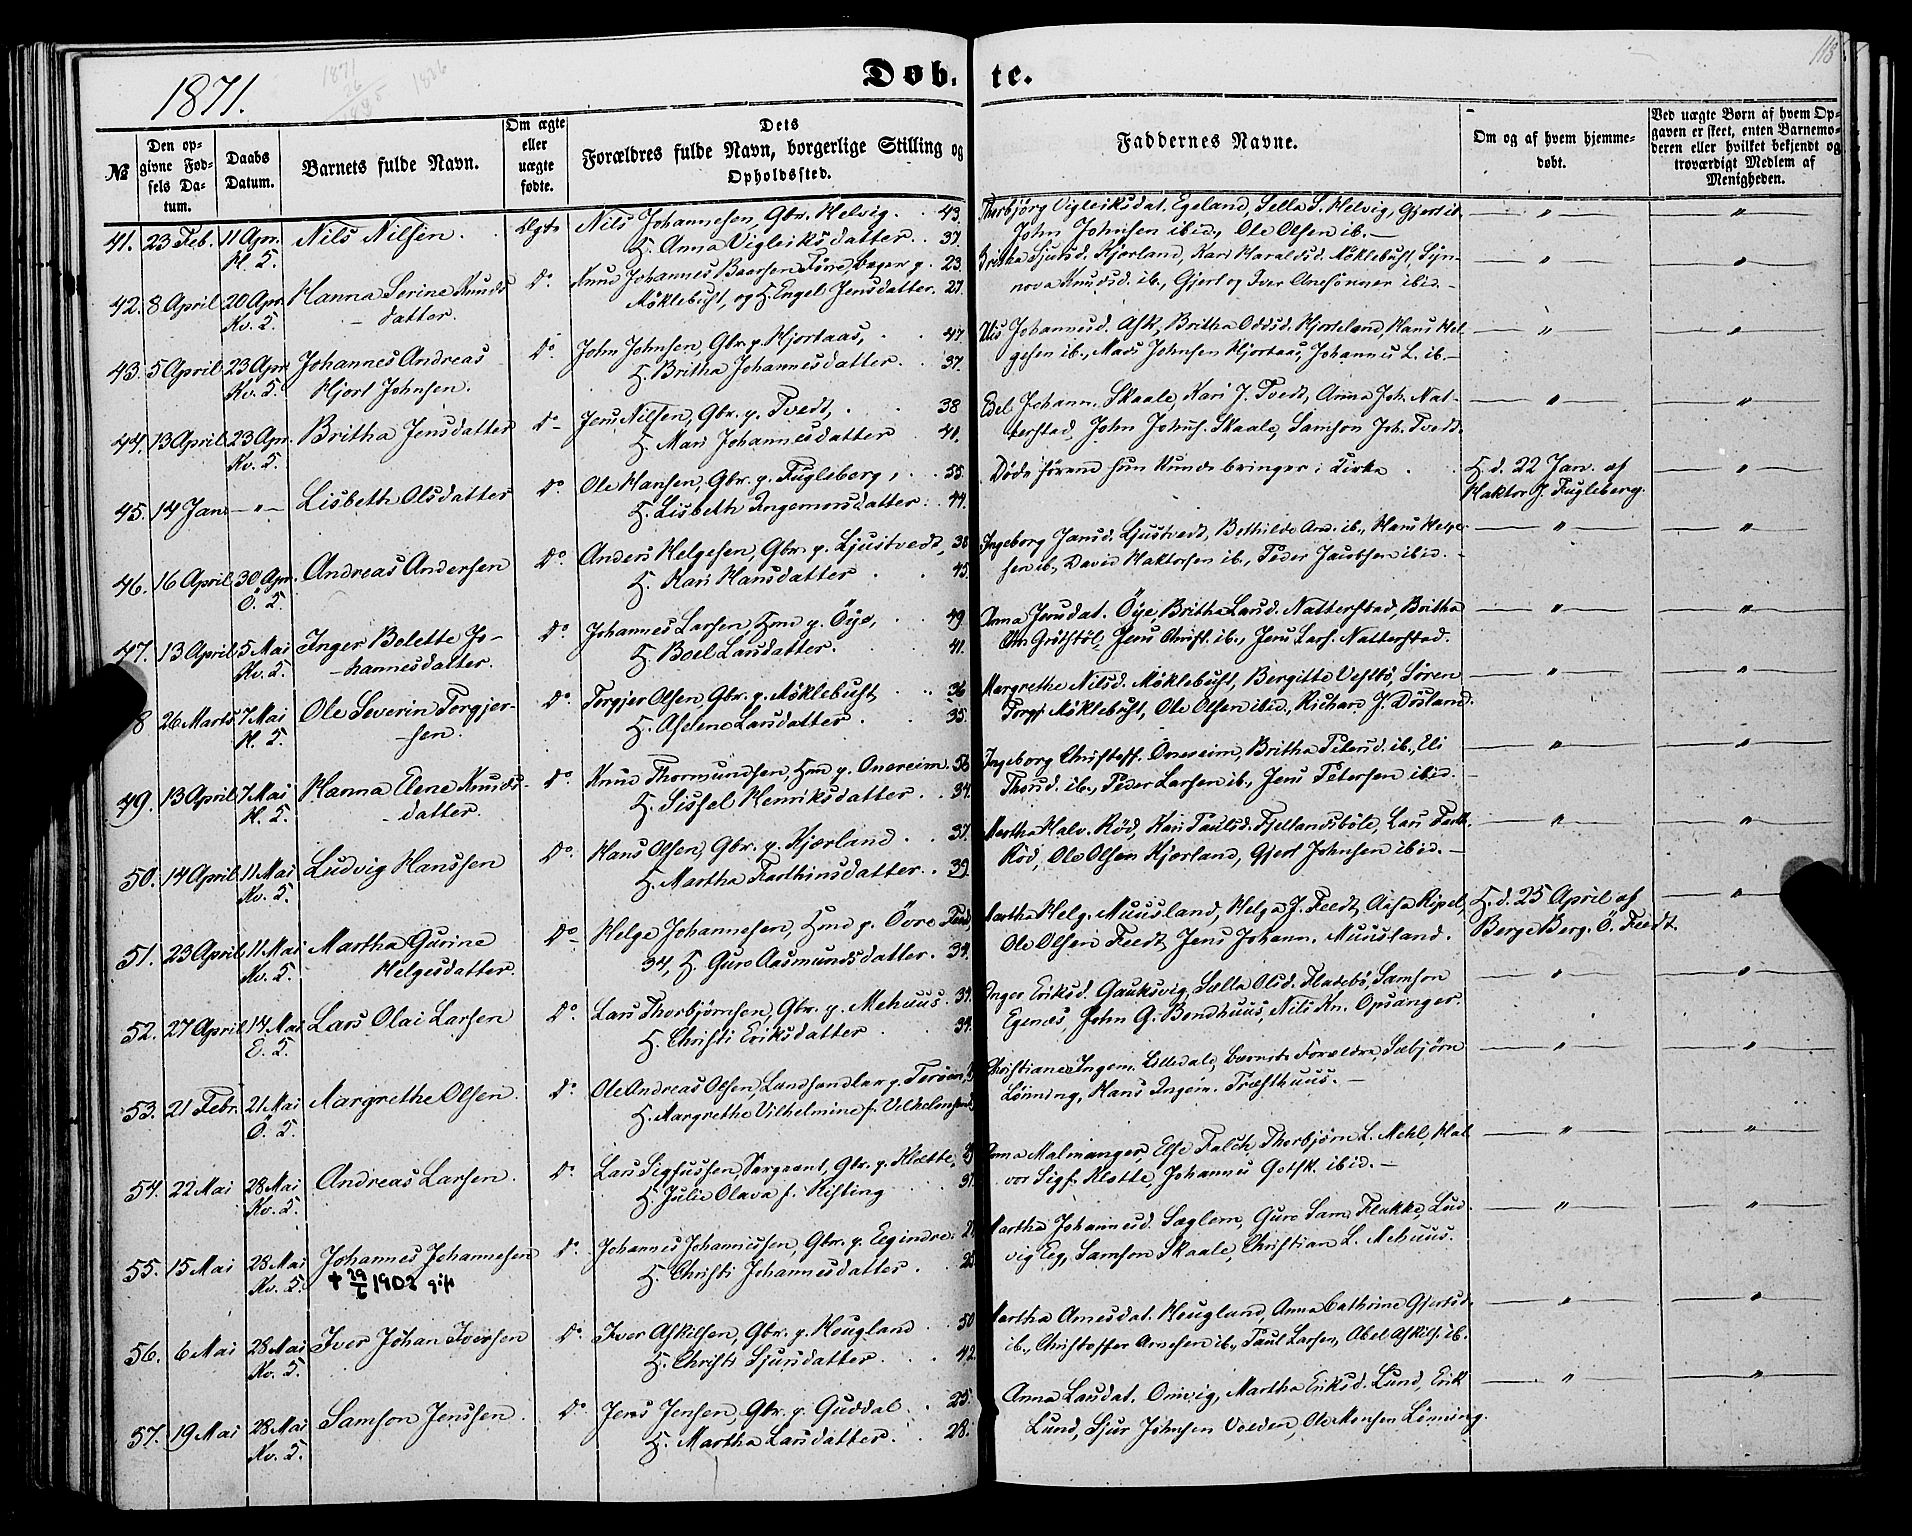 1871.
1871
26
1885
1826
Døb-
te.
113
№
Den op-
givne Fød-
sels Da-
tum.
Daabs
Datum.
Barnets fulde Navn.
Om ægte
eller
uægte
fødte.
Dets
Forældres fulde Navn, borgerlige Stilling og
Opholdssted.
Faddernes Navne.
Om og af hvem hjemme-
døbt.
Ved uægte Børn af hvem Op-
gaven er skeet, enten Barnemo-
deren eller hvilket bekjendt og
troværdigt Medlem af
Menigheden.
41. 23 Feb. 11 Apr. Nils Nilsen. Ægte Nils Johannesen, Gbr. Helvig. 43.
H. 5. H. Anna Vigleiksdatter. 37.
Thorbjörg Vigleiksdat. Egeland, Sella S. Helvig, Gjert ib.
John Johnsen ibid., Ole Olsen ib. —
42. 8 April 20 Apr. Hanna Serine Knuds- Do. Knud Johannes Baarsen Töre, Bager p. 23.
Kv. 5. datter. Möklebust, og H. Engel Jensdatter. 27.
Britha Sjursd. Kjærland, Kari Haraldsd. Möklebust, Syn-
nova Knudsd. ib., Gjert og Iver Anesönner ibid. —
43. 5 April 23 Apr. Johannes Andreas Do. John Johnsen, Gbr. p. Hjortaas, 47
Kv. 5. Hjort Johnsen. H. Britha Johannesdatter. 37.
Johannesd. Ask, Britha Oddsd. Hjorteland, Hans Hel-
gesen ib., Mads Johnsen Hjortaas, Johannes L. ib. —
44. 13 April 23 Apr. Britha Jensdatter Do Jens Nilsen, Gbr. p. Tvedt, 38
Kv. 5. H. Mari Johannesdatter 41.
Edel Johann. Skaale, Kari J. Tvedt, Anna Joh. Nat-
terstad, John Johns. Skaale, Samson Joh. Tvedt.
45. 14 Jan. — " — Lisbeth Olsdatter Do. Ole Hansen, Gbr. p. Fugleberg, 55.
H. Lisbeth Ingemorsdatter. 44.
Döde förend hun kunde bringes i Kirke.
H. d. 22 Jan. af
Haktor J. Fugleberg.
46. 16 April 30 Apr. Andreas Andersen Do. Anders Helgesen, Gbr. p. Ljustvedt, 38
Ö. 5. H. Kari Hansdatter 45.
Ingeborg Jansd. Ljustvedt, Bothilde And. ib., Hans Helge-
sen ib., David Haktorsen ib., Peder Jacobsen ibid.
47. 13 April 5 Mai Inger Bolette Jo- Do. Johannes Larsen Hmd p. Öye, 49
Kv. 5. hannesdatter. H. Boel Larsdatter. 41.
Anna Jensdat. Öye, Britha Larsd. Natterstad, Britha
Jens Christ. ib., Jens Lars. Natterstad.
8 26 Marts 7 Mai Ole Severin Torgjer- Do. Torgjer Olsen, Gbr. p. Möklebust 36
H. 5. sen. H. Asseline Larsdatter. 35.
Margrethe Nilsd. Möklebust, Bergitte Vestbö, Sören
Torgj. Möklebust, Ole Olsen ibid., Richard J. Dosland.
49. 13 April 7 Mai Hanna Elene Knuds- Do. Knud Thormundsen, Hmd p. Onereim. 56
H. 5. datter. H. Sissel Henriksdatter. 34.
Ingeborg Christoff. Onereim, Britha Petersd. ib., Eli
Thord. ib., Peder Larsen ib., Jens Petersen ibid.
50. 14 April 11 Mai Ludvig Hanssen Do. Hans Olsen, Gbr. p. Kjærland. 37.
Kv. 5. H. Martha Farthinsdatter. 39.
Martha Halv. Röd, Kari Paulsd. Fjellandsböle, Lars Farth.
Röd, Ole Olsen Kjærland, Gjert Johnsen ibid. —
51. 23 April 11 Mai Martha Gurine Do Helge Johannesen, Hmd p. Övre Feedt,
Kv. 5. Helgesdatter. 34, H. Guro Aasmundsdatter. 34.
Martha Helg. Muusland, Helga J. Feedt, Aasa Ripel,
Ole Olsen Feedt, Jens Johann. Muusland.
H. d. 25 April af
Berge Berg. Ö. Feedt.
52. 27 April 14 Mai Lars Olai Larsen Do. Lars Thorbjörnsen, Gbr. p. Mehuus. 37.
E. 5. H. Christi Eriksdatter 34.
Inger Eriksd. Gauksvig, Sella Olsd. Fladebö, Samson
Egenæs, John G. Bondhuus, Nils Kn. Opsanger.
53. 21 Febr. 21 Mai Margrethe Olsen. Do. Ole Andreas Olsen, Landhandler p. Terøen,
Ö. 5. H. Margrethe Vilhelmine f. Vilhelmsen
Christiane Ingem. Lilledal, Barnets Forældre, Sæbjörn
Lönning, Hans Ingem. Træsthuus. —
54. 22 Mai 28 Mai Andreas Larsen. Do. Lars Sigfussen, Sergeant, Gbr. p. Klætte,
Kv. 5. H. Julie Olava f. Kisting 31.
Anna Malmanger, Else Falch, Thorbjörn L. Mehl, Hal-
vor Sigf. Klette, Johannes Gotsk. ibid. —
55. 15 Mai 28 Mai Johannes Johannesen Do. Johannes Johannessen, Gbr. p. Eg indre.
Kv. 5. † 29/6 1902 gift H. Christi Johannesdatter. 25.
Martha Johannesd. Sæglem, Guro Sams. Flukke, Lud-
vig Eeg, Samson Skaale, Christian L. Mehuus.
56. 6 Mai 28 Mai Iver Johan Iversen Do. Iver Askilsen, Gbr. p. Hougland 50
Kv. 5. H. Christi Sjursdatter. 42.
Martha Arnesdat. Hougland, Anna Cathrine Gjertsd.
ib., Christoffer Arnesen ib., Paul Larsen, Abel Askils. ib.
57. 19 Mai 28 Mai Samson Jenssen. Do. Jens Jensen, Gbr. p. Guddal. 25.
Kv. 5. H. Martha Larsdatter. 28.
Anna Larsdat. Omvig, Martha Eriksd. Lund, Erik
Lund, Sjur Johnsen Valen, Ole Monsen Lönning.